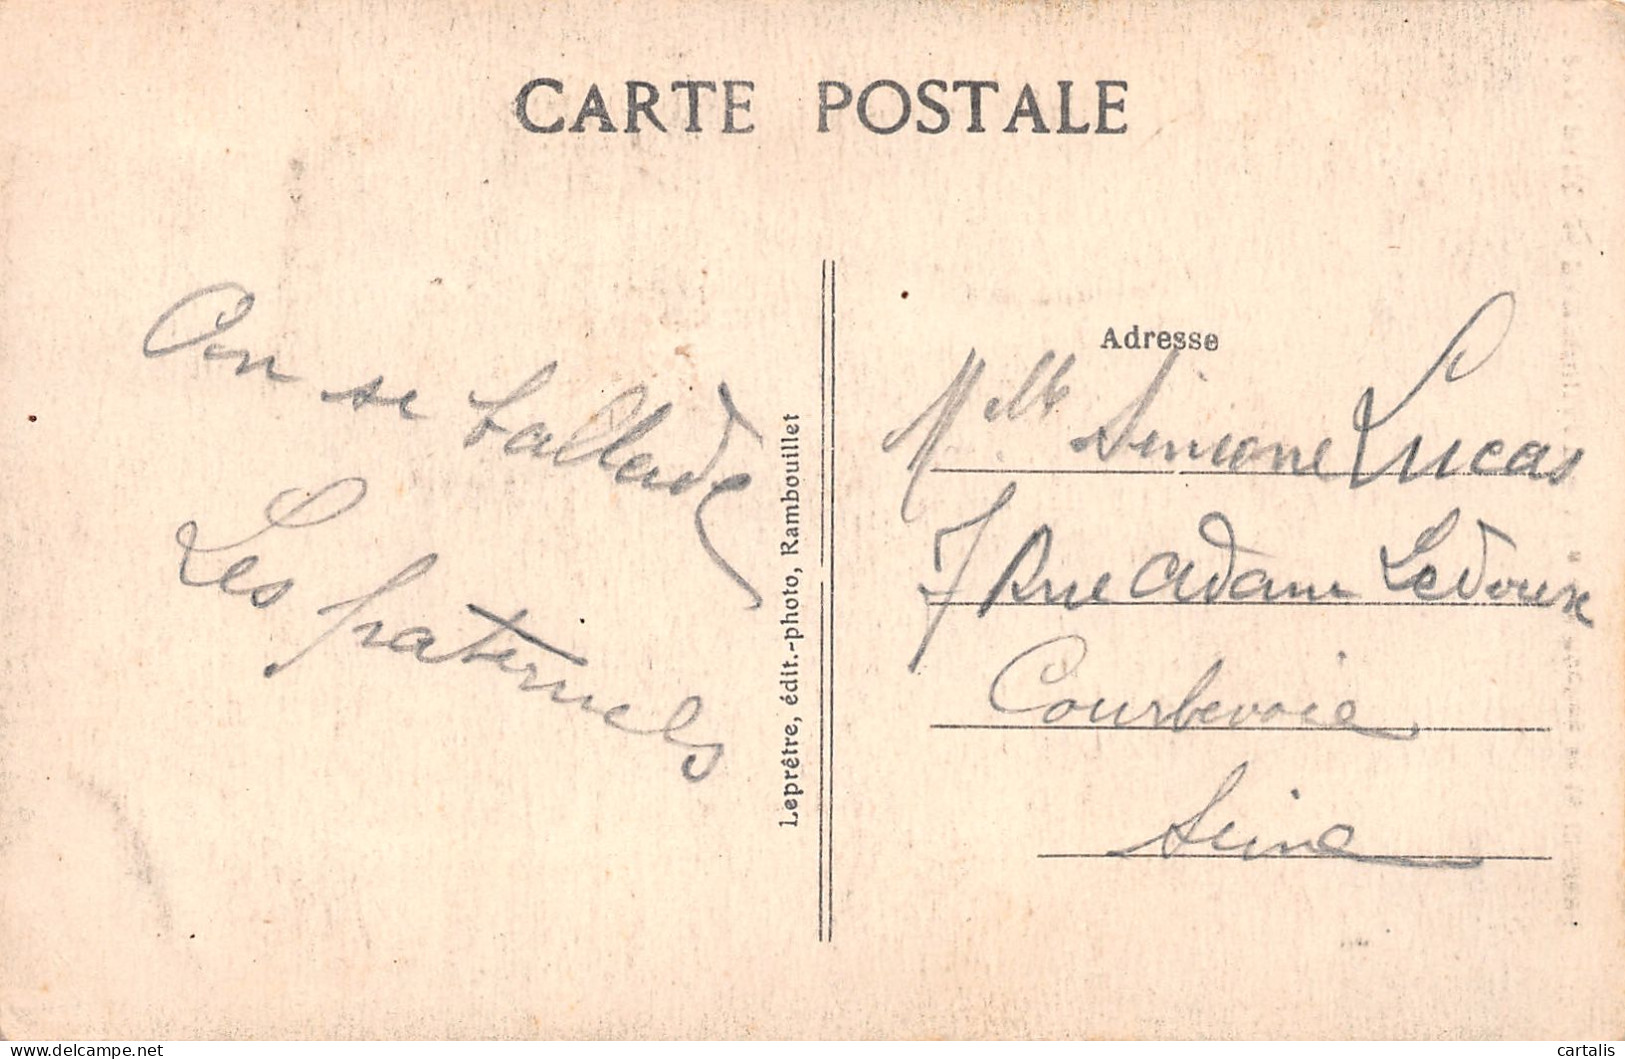 CARTE POSTALE
On se ballade
Les fraternels
Leprêtre, édit.-photo, Rambouillet
Adresse
Melle Simone Lucas
7 Rue Adam Ledoux
Courbevoie
Seine
cartalis